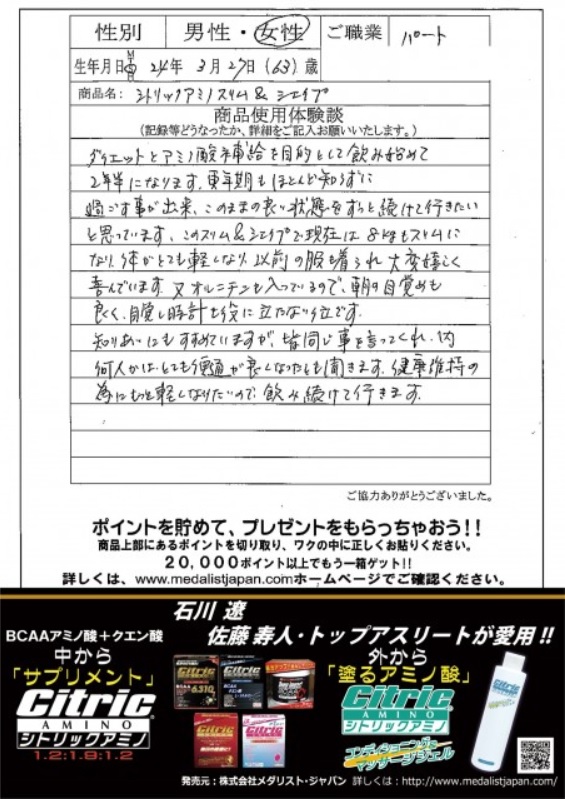 性別 男性・女性 ご職業 パート
生年月日 M T S H 24年 3月27日(63)歳
商品名: シトリックアミノスリム&シェイプ
商品使用体験談
(記録等どうなったか、詳細をご記入お願いいたします。)
ダイエットとアミノ酸補給を目的として飲み始めて
2年半になります。更年期もほとんど知らずに
過ごす事が出来、このままの良い状態をずっと続けて行きたい
と思っています。このスリム&シェイプで現在は8kgもスリムに
なり、体がとても軽くなり、以前の服も着られ大変嬉しく
喜んでいます。又オルニチンも入っているので、朝の目覚めも
良く、目覚し時計も役に立たない位です。
知りあいにもすすめていますが、皆同じ事を言ってくれ、内
何人かは、とても便通が良くなったとも聞きます。健康維持の
為にもっと軽くなりたいので、飲み続けて行きます。
ご協力ありがとうございました。
ポイントを貯めて、プレゼントをもらっちゃおう!!
商品上部にあるポイントを切り取り、ワクの中に正しくお貼りください。
20,000ポイント以上でもう一箱ゲット!!
詳しくは、www.medalistjapan.comホームページでご確認ください。
石川 遼
佐藤 寿人・トップアスリートが愛用!!
BCAAアミノ酸+クエン酸
中から
「サプリメント」
Citric
AMINO
シトリックアミノ
1.2:1.9:1.2
外から
「塗るアミノ酸」
Citric
AMINO
シトリックアミノ
コンディショニング&
マッサージジェル
発売元:株式会社メダリスト・ジャパン 詳しくは:http://www.medalistjapan.com/